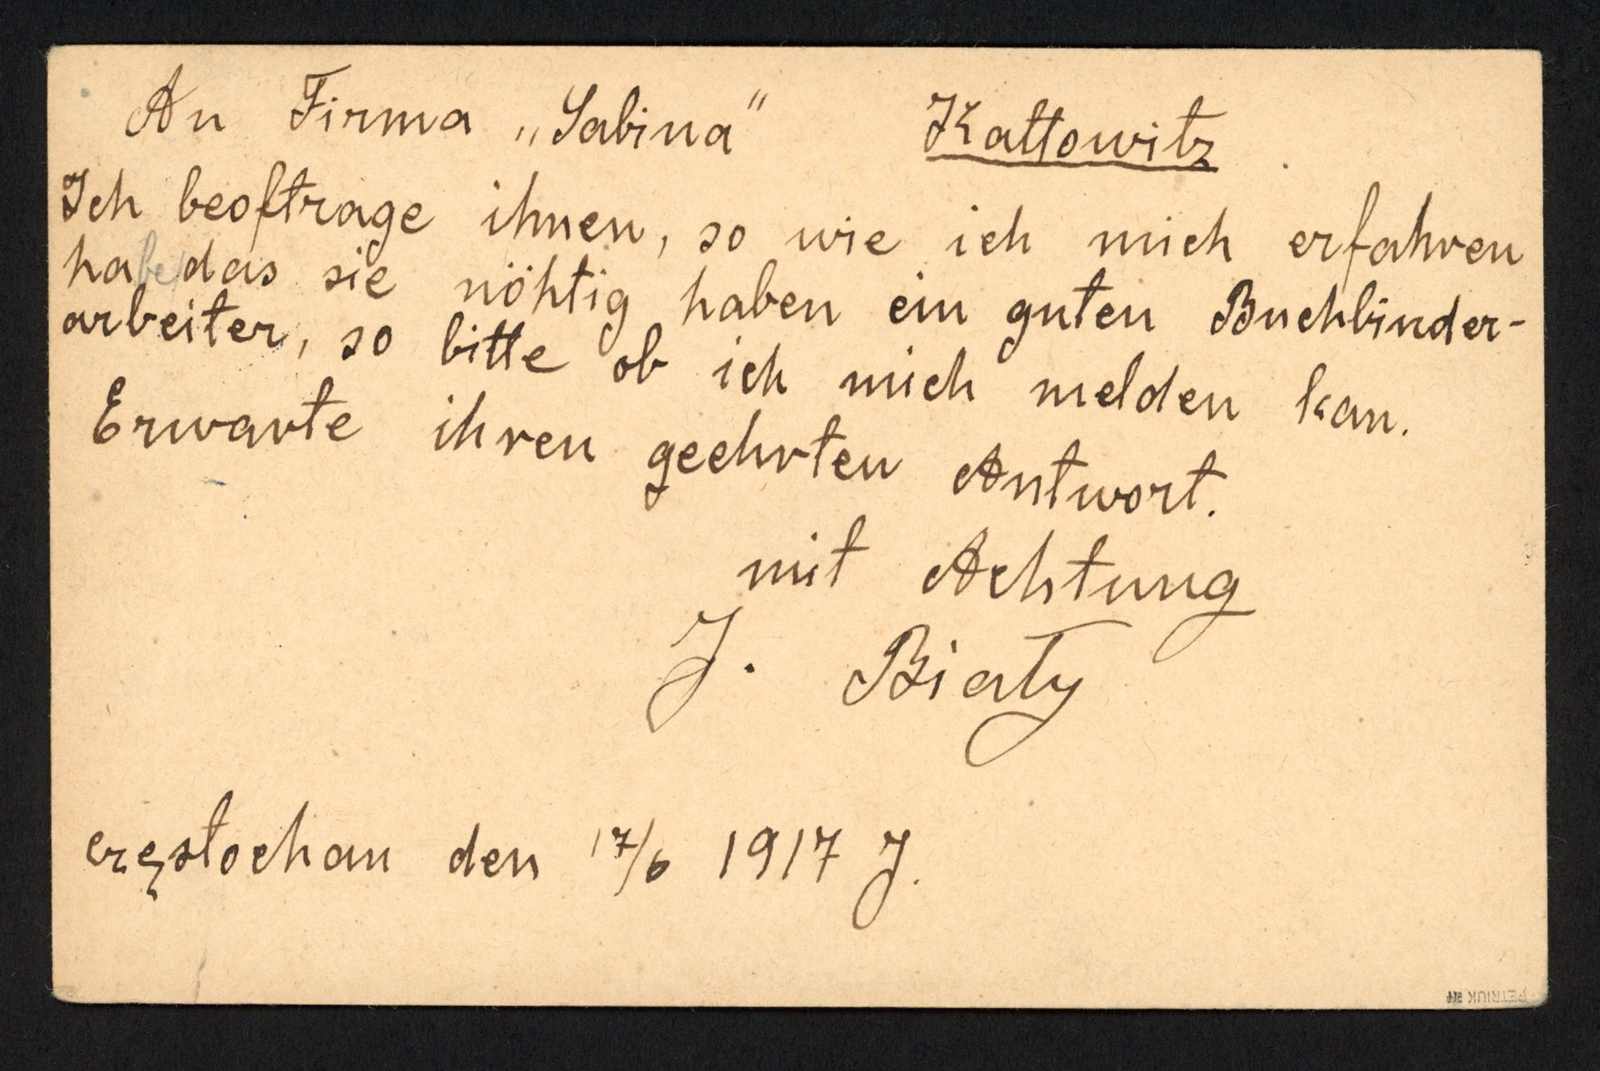 An Firma „Sabina" Kattowitz
Ich beoftrage ihnen, so wie ich mich erfahren
habe das sie nöhtig haben ein guten Buchbinder-
arbeiter, so bitte ob ich mich melden kan.
Erwarte ihren geehrten Antwort.
mit Achtung
J. Biały
częstochau den 17/6 1917 J.
PETRIUK